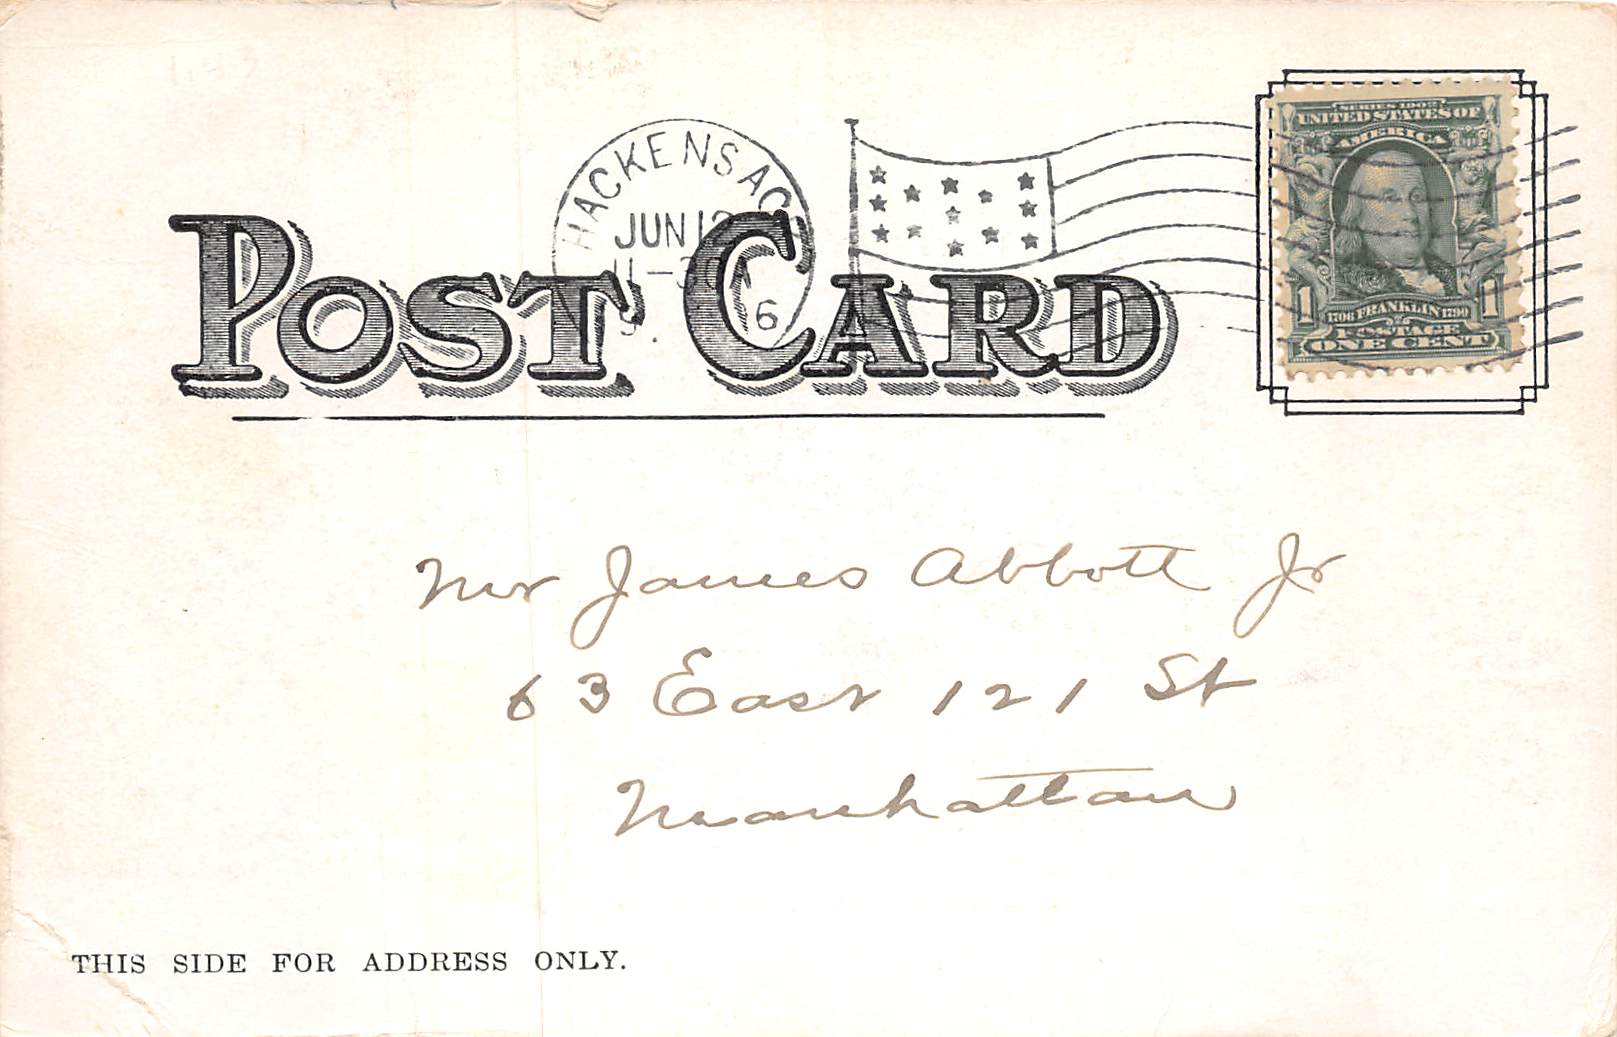 HACKENSACK
JUN 12
11-30
6
POST CARD
SERIES 1902
UNITED STATES OF
AMERICA
1706 FRANKLIN 1790
1 1
POSTAGE
ONE CENT
Mr James Abbott Jr
63 East 121 St
Manhattan
THIS SIDE FOR ADDRESS ONLY.